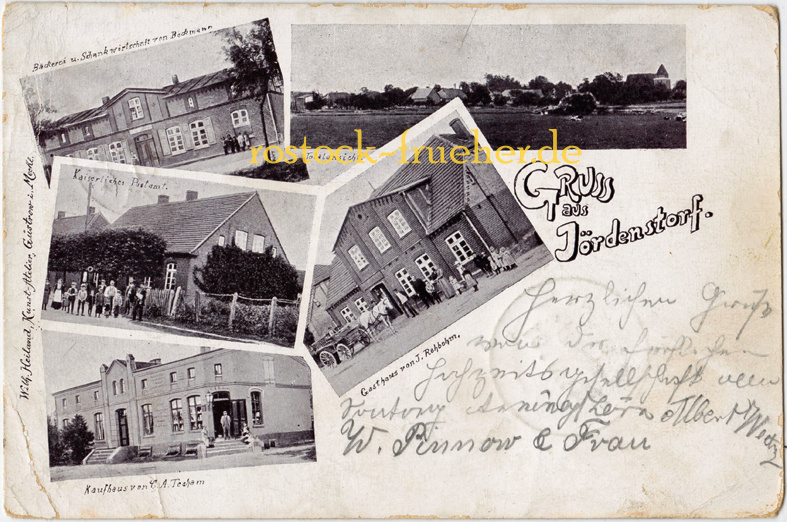 Bäckerei u. Schankwirtschaft von Beckmann.
Totalansicht.
rostock-frueher.de
Kaiserliches Postamt.
Gruss
aus
Jördenstorf.
Wilh. Heiland, Kunst-Atelier, Güstrow i. Meckl.
Gasthaus von J. Rehbohm.
Herzlichen Gruß
von der fröhlichen
Hochzeitsgesellschaft
Albert
W. Pinnow & Frau
Kaufhaus von C. A. Techam